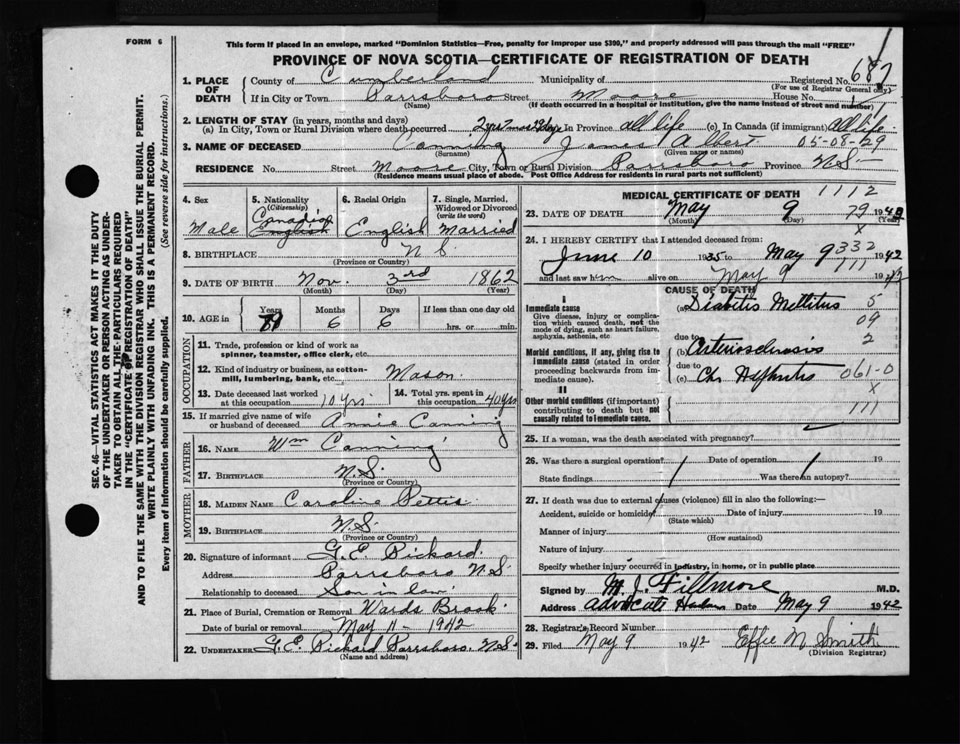 FORM 6
This form if placed in an envelope, marked "Dominion Statistics—Free, penalty for improper use $300," and properly addressed will pass through the mail "FREE"
PROVINCE OF NOVA SCOTIA—CERTIFICATE OF REGISTRATION OF DEATH
SEC. 46—VITAL STATISTICS ACT MAKES IT THE DUTY
OF THE UNDERTAKER OR PERSON ACTING AS UNDER-
TAKER TO OBTAIN ALL THE PARTICULARS REQUIRED
IN THE "CERTIFICATE OF REGISTRATION OF DEATH"
AND TO FILE THE SAME WITH THE DIVISION REGISTRAR WHO SHALL ISSUE THE BURIAL PERMIT.
WRITE PLAINLY WITH UNFADING INK. THIS IS A PERMANENT RECORD.
Every item of information should be carefully supplied. (See reverse side for instructions.)
1. PLACE OF DEATH
County of Cumberland Municipality of Registered No. 687
(For use of Registrar General only)
If in City or Town Parrsboro Street Moore House No.
(Name) (If death occurred in a hospital or institution, give the name instead of street and number)
2. LENGTH OF STAY (in years, months and days)
(a) In City, Town or Rural Division where death occurred 2 yrs 7 mos 29 days In Province all life (c) In Canada (if immigrant) All life
3. NAME OF DECEASED Canning James Albert 05-08-29
(Surname) (Given name or names)
RESIDENCE No. Street Moore City, Town or Rural Division Parrsboro Province N.S.
(Residence means usual place of abode. Post Office Address for residents in rural parts not sufficient)
4. Sex Male
5. Nationality (Citizenship) Canadian English
6. Racial Origin English
7. Single, Married, Widowed or Divorced (write the word) Married
8. BIRTHPLACE N S
(Province or Country)
9. DATE OF BIRTH Nov. 3rd 1862
(Month) (Day) (Year)
10. AGE in Years 79 Months 6 Days 6 If less than one day old hrs. or min.
OCCUPATION
11. Trade, profession or kind of work as
spinner, teamster, office clerk, etc.
12. Kind of industry or business, as cotton-
mill, lumbering, bank, etc. Mason
13. Date deceased last worked at this occupation 10 yrs
14. Total yrs. spent in this occupation 40 yrs
15. If married give name of wife
or husband of deceased Annie Canning
FATHER
16. NAME Wm Canning
17. BIRTHPLACE N.S.
(Province or Country)
MOTHER
18. MAIDEN NAME Caroline Pettis
19. BIRTHPLACE N.S.
(Province or Country)
20. Signature of informant G. E. Rickard.
Address Parrsboro N.S.
Relationship to deceased Son in law
21. Place of Burial, Cremation or Removal Wards Brook
Date of burial or removal May 11 - 1942
22. UNDERTAKER G. E. Rickard Parrsboro, N.S.
(Name and address)
MEDICAL CERTIFICATE OF DEATH 1112
23. DATE OF DEATH May 9 79 194
(Month) (Day) (Year)
x
24. I HEREBY CERTIFY that I attended deceased from:
June 10 1935 to May 9 332 1942
and last saw him alive on May 9 111 1942
CAUSE OF DEATH
I
Immediate cause
Give disease, injury or complica-
tion which caused death, not the
mode of dying, such as heart failure,
asphyxia, asthenia, etc.
(a) Diabetis Mellitus 5
09
due to 2
Morbid conditions, if any, giving rise to
immediate cause (stated in order
proceeding backwards from im-
mediate cause).
(b) Arteriosclerosis
due to
(c) Chr Nephritis 061-0
x
II
Other morbid conditions (if important)
contributing to death but not
causally related to immediate cause.
111
25. If a woman, was the death associated with pregnancy?
26. Was there a surgical operation? Date of operation 19
State findings Was there an autopsy?
27. If death was due to external causes (violence) fill in also the following:—
Accident, suicide or homicide? Date of injury 19
(State which)
Manner of injury
(How sustained)
Nature of injury
Specify whether injury occurred in industry, in home, or in public place
Signed by M. J. Fillmore M.D.
Address Advocate Harbor Date May 9 1942
28. Registrar's Record Number
29. Filed May 9 1942 Effie N Smith
(Division Registrar)